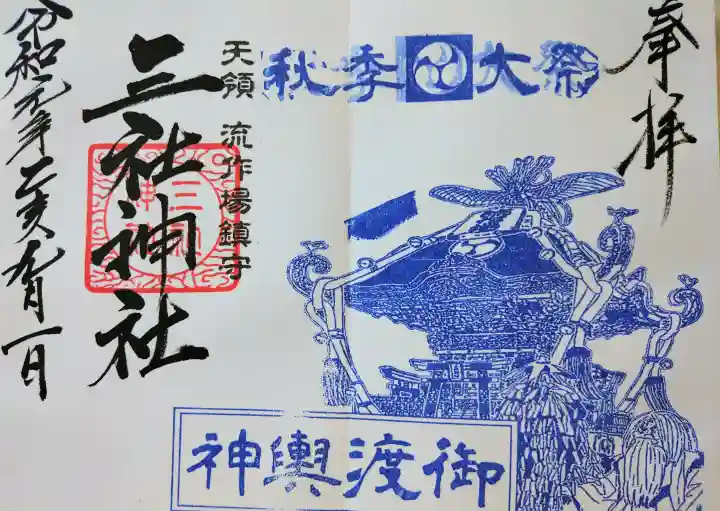 奉拝
秋季大祭
天領 流作場鎮守
三社神社
令和元年乙亥九月一日
御渡輿神